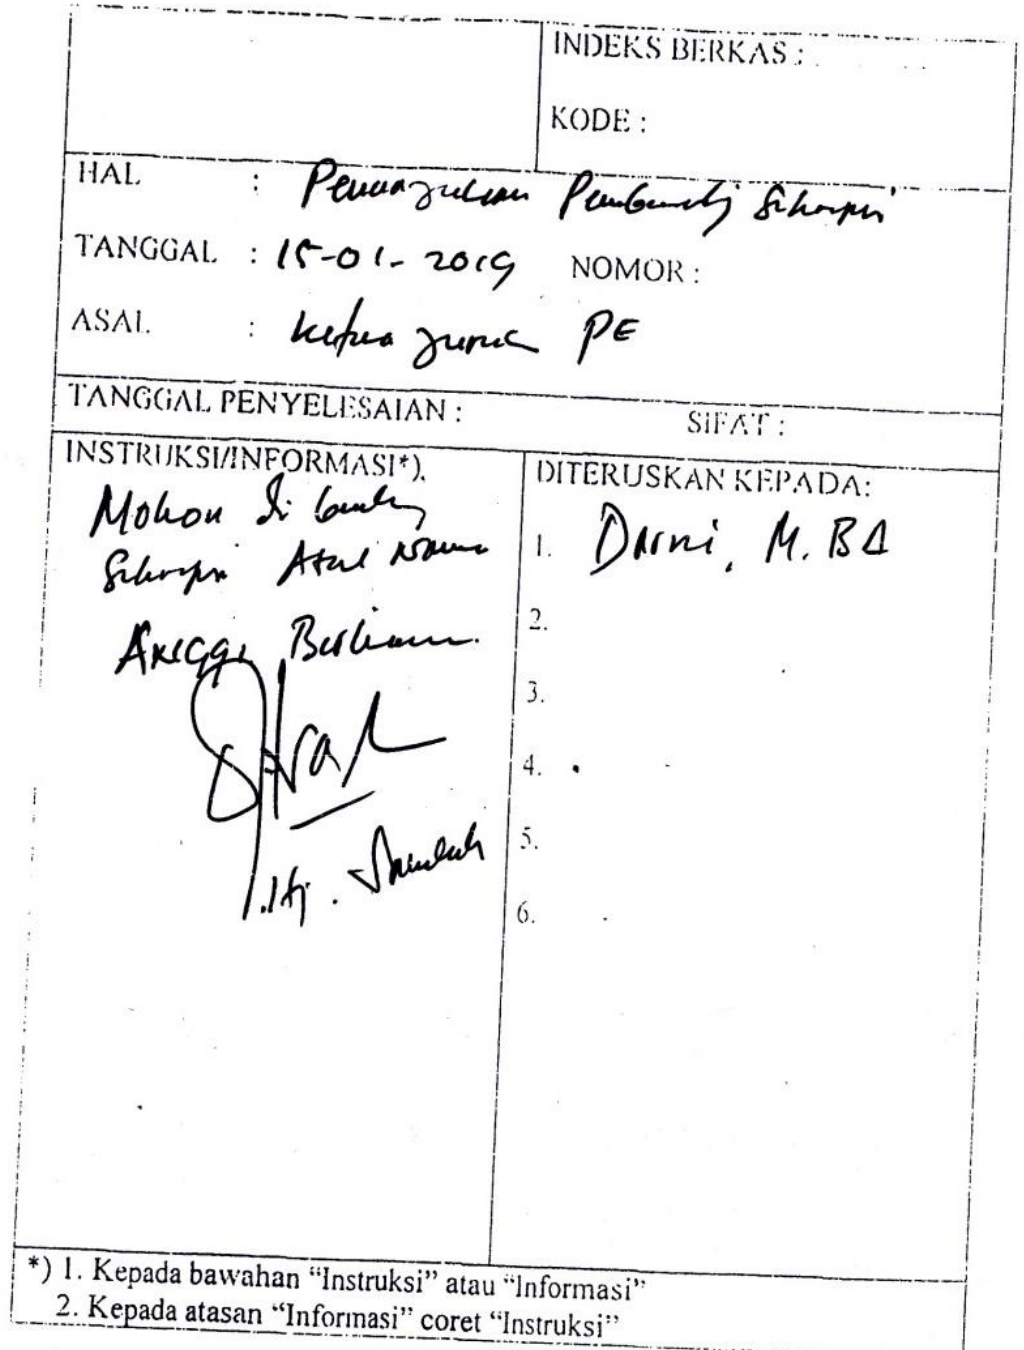 INDEKS BERKAS :
KODE :
HAL : Penunjukan Pembimbing Skripsi
TANGGAL : 15-01-2019 NOMOR :
ASAL : Ketua Jurusan PE
TANGGAL PENYELESAIAN : SIFAT :
INSTRUKSI/INFORMASI*)
Mohon di
Skripsi Atas Nama
Anggi
DITERUSKAN KEPADA:
1. Darni, M.BA
2.
3.
4.
5.
6.
*) 1. Kepada bawahan “Instruksi” atau “Informasi”
2. Kepada atasan “Informasi” coret “Instruksi”